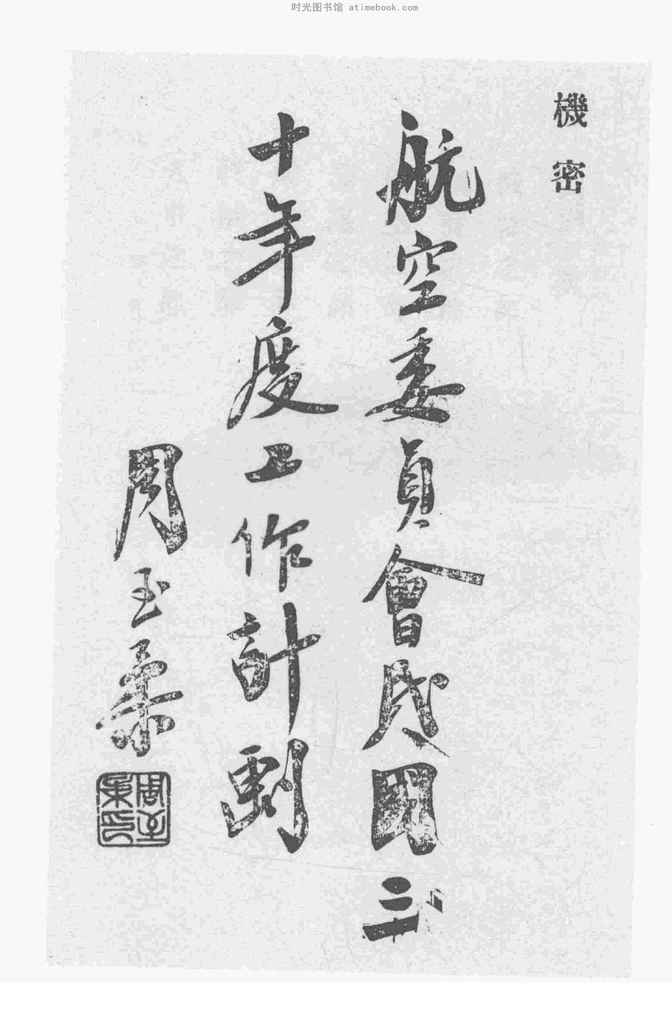 时光图书馆 atimebook.com
機密
航空委員會民國三
十年度工作計劃
周至柔
周至
柔印